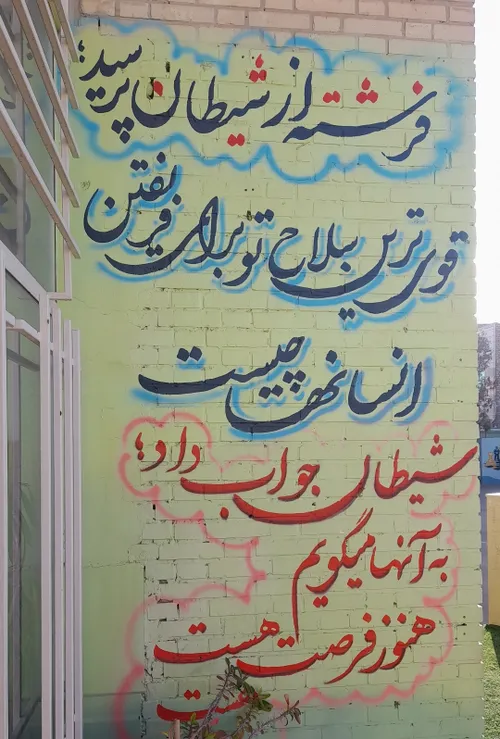 فرشته از شیطان پرسید؛
قوی ترین سلاح تو برای فریفتن
انسانها چیست
شیطان جواب داد؛
به آنها میگویم
هنوز فرصت هست
هست